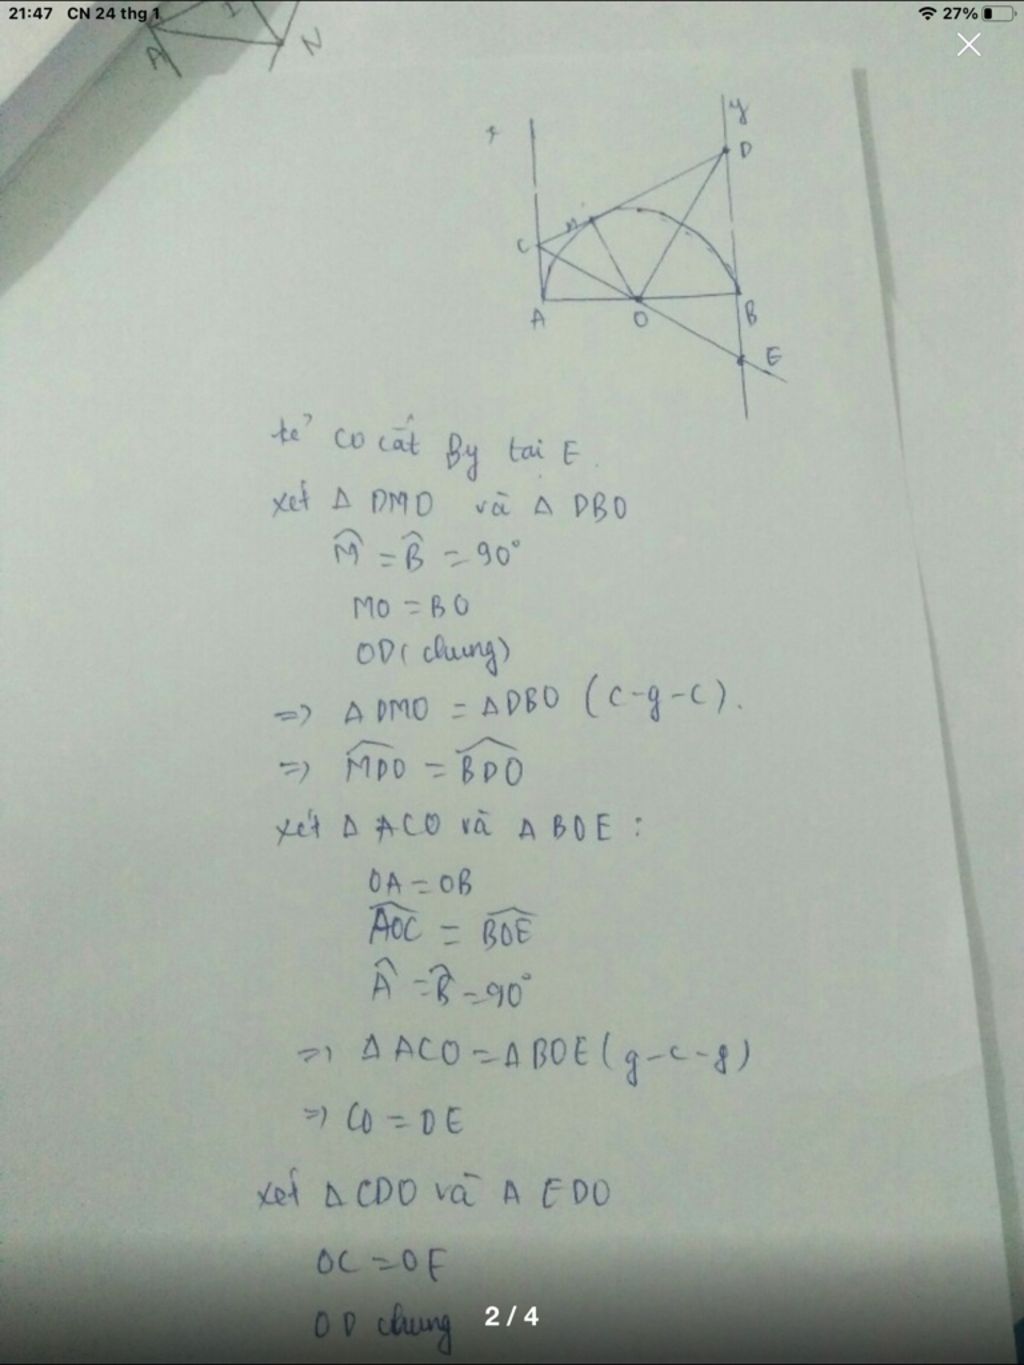 21:47 CN 24 thg 1
27%
A
N
x
y
D
C
M
A
O
B
E
kẻ CO cắt By tại E.
xét Δ DMO và Δ DBO
M̂ = B̂ = 90°
MO = BO
OD (chung)
=> Δ DMO = Δ DBO (c-g-c).
=> MDO = BDO
xét Δ ACO và Δ BOE :
OA = OB
AOC = BOE
 = B̂ = 90°
=> Δ ACO = Δ BOE (g-c-g)
=> CO = OE
xét Δ CDO và Δ EDO
OC = OE
OD chung
2 / 4